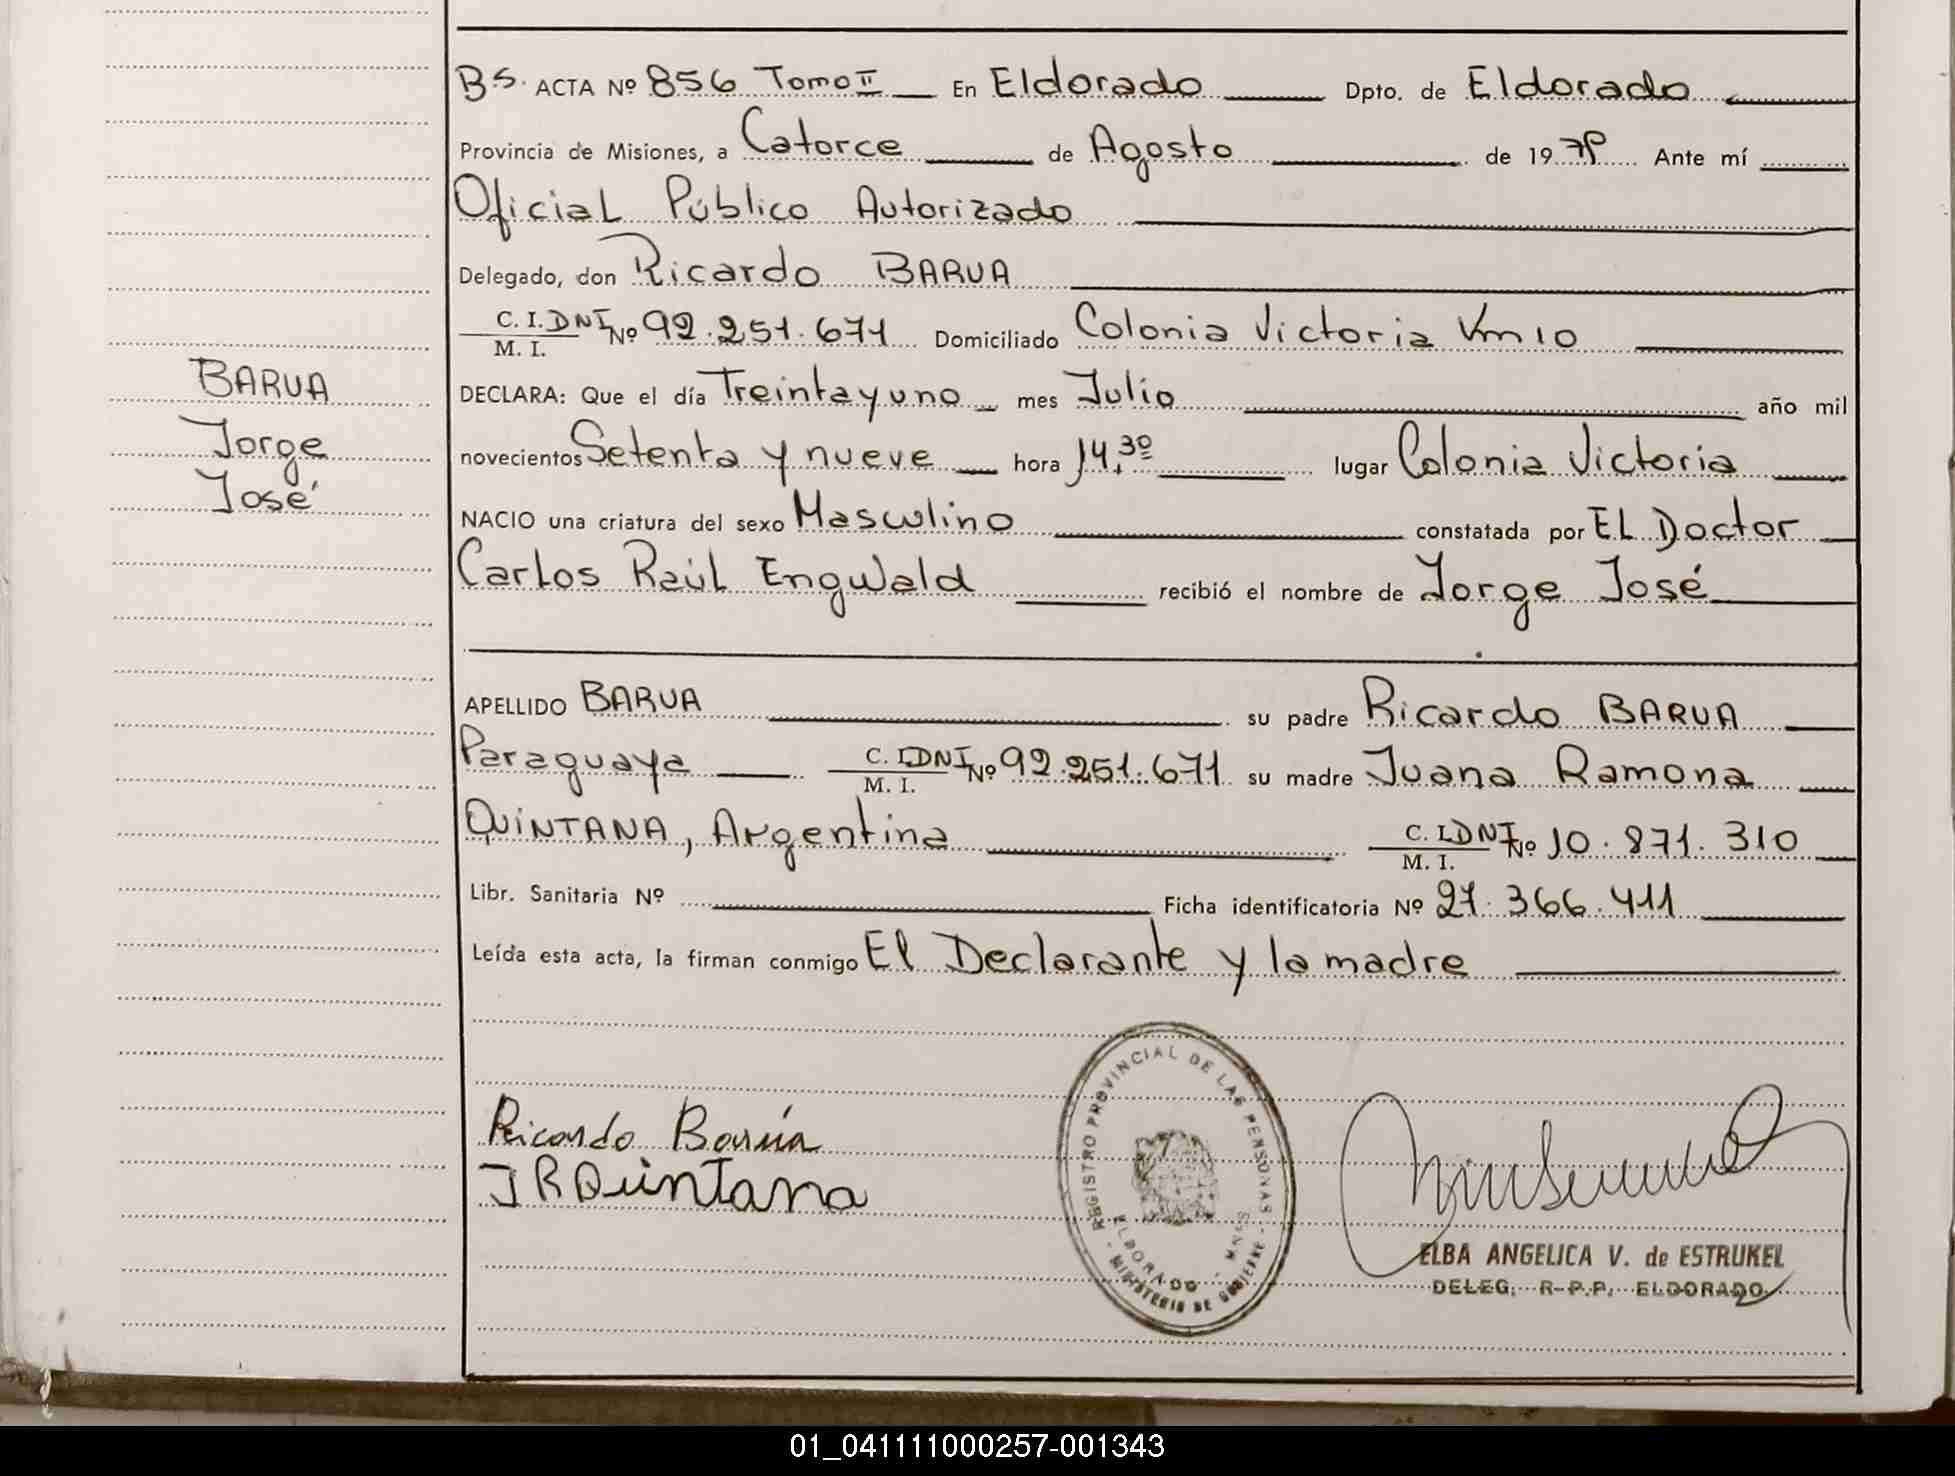 Bs. ACTA Nº 856 Tomo II En Eldorado Dpto. de Eldorado
Provincia de Misiones, a Catorce de Agosto de 1979 Ante mí
Oficial Público Autorizado
Delegado, don Ricardo BARUA
C. I. DNI Nº 92.251.671 Domiciliado Colonia Victoria Km 10
M. I.
DECLARA: Que el día Treinta y uno mes Julio año mil
novecientos Setenta y nueve hora 14,30 lugar Colonia Victoria
NACIO una criatura del sexo Masculino constatada por EL Doctor
Carlos Raúl Engwald recibió el nombre de Jorge José
BARUA
Jorge
José
APELLIDO BARUA su padre Ricardo BARUA
Paraguaya C. I. DNI Nº 92.251.671 su madre Juana Ramona
M. I.
QUINTANA, Argentina C. I. DNI Nº 10.871.310
M. I.
Libr. Sanitaria Nº Ficha identificatoria Nº 27.366.411
Leída esta acta, la firman conmigo El Declarante y la madre
Ricardo Barúa
J R Quintana
REGISTRO PROVINCIAL DE LAS PERSONAS
ELDORADO - MNES
MINISTERIO DE GOBIERNO
ELBA ANGELICA V. de ESTRUKEL
DELEG. R-P.P. ELDORADO
01_041111000257-001343